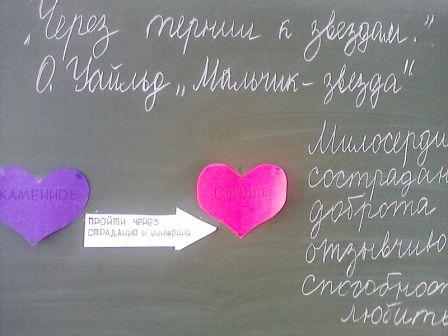 „Через тернии к звездам."
О. Уайльд „Мальчик-звезда"
КАМЕННОЕ
ПРОЙТИ ЧЕРЕЗ
СТРАДАНИЯ И
Милосерди
сострадан
доброта
отзывчиво
способност
любить